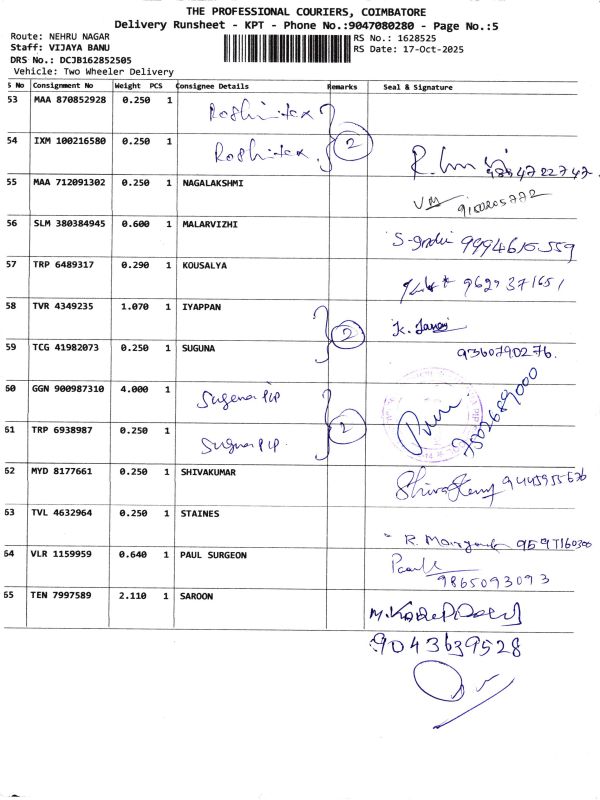 THE PROFESSIONAL COURIERS, COIMBATORE
Delivery Runsheet - KPT - Phone No.:9047080280 - Page No.:5
Route: NEHRU NAGAR
RS No.: 1628525
Staff: VIJAYA BANU
RS Date: 17-Oct-2025
DRS No.: DCJB162852505
Vehicle: Two Wheeler Delivery
S No Consignment No Weight PCS Consignee Details Remarks Seal & Signature
53 MAA 870852928 0.250 1 Roshnitex
54 IXM 100216580 0.250 1 Roshnitex 2
55 MAA 712091302 0.250 1 NAGALAKSHMI
VM
56 SLM 380384945 0.600 1 MALARVIZHI
57 TRP 6489317 0.290 1 KOUSALYA
9629371651
58 TVR 4349235 1.070 1 IYAPPAN 2
59 TCG 41982073 0.250 1 SUGUNA 9360790276.
60 GGN 900987310 4.000 1 Suguna PIP
7502689000
61 TRP 6938987 0.250 1 Suguna PIP. 2
62 MYD 8177661 0.250 1 SHIVAKUMAR
63 TVL 4632964 0.250 1 STAINES
64 VLR 1159959 0.640 1 PAUL SURGEON
9865093093
65 TEN 7997589 2.110 1 SAROON
9043639528